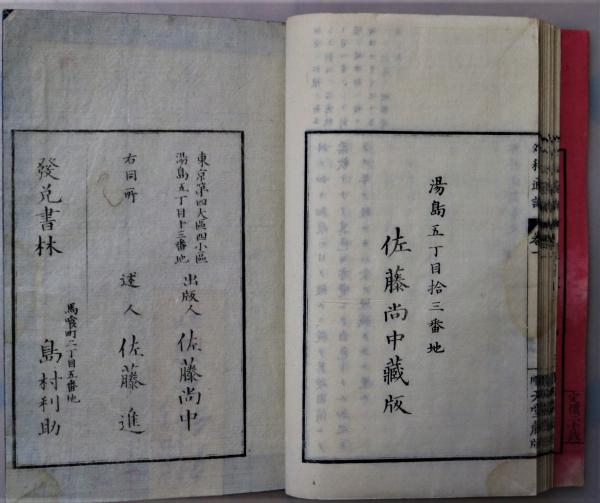 湯島五丁目拾三番地
佐藤尚中藏版
外科通論
卷一
定價二十錢
東京第四大區四小區
湯島五丁目十三番地
出版人 佐藤尚中
右同所
述人 佐藤進
馬喰町二丁目五番地
發兌書林 島村利助